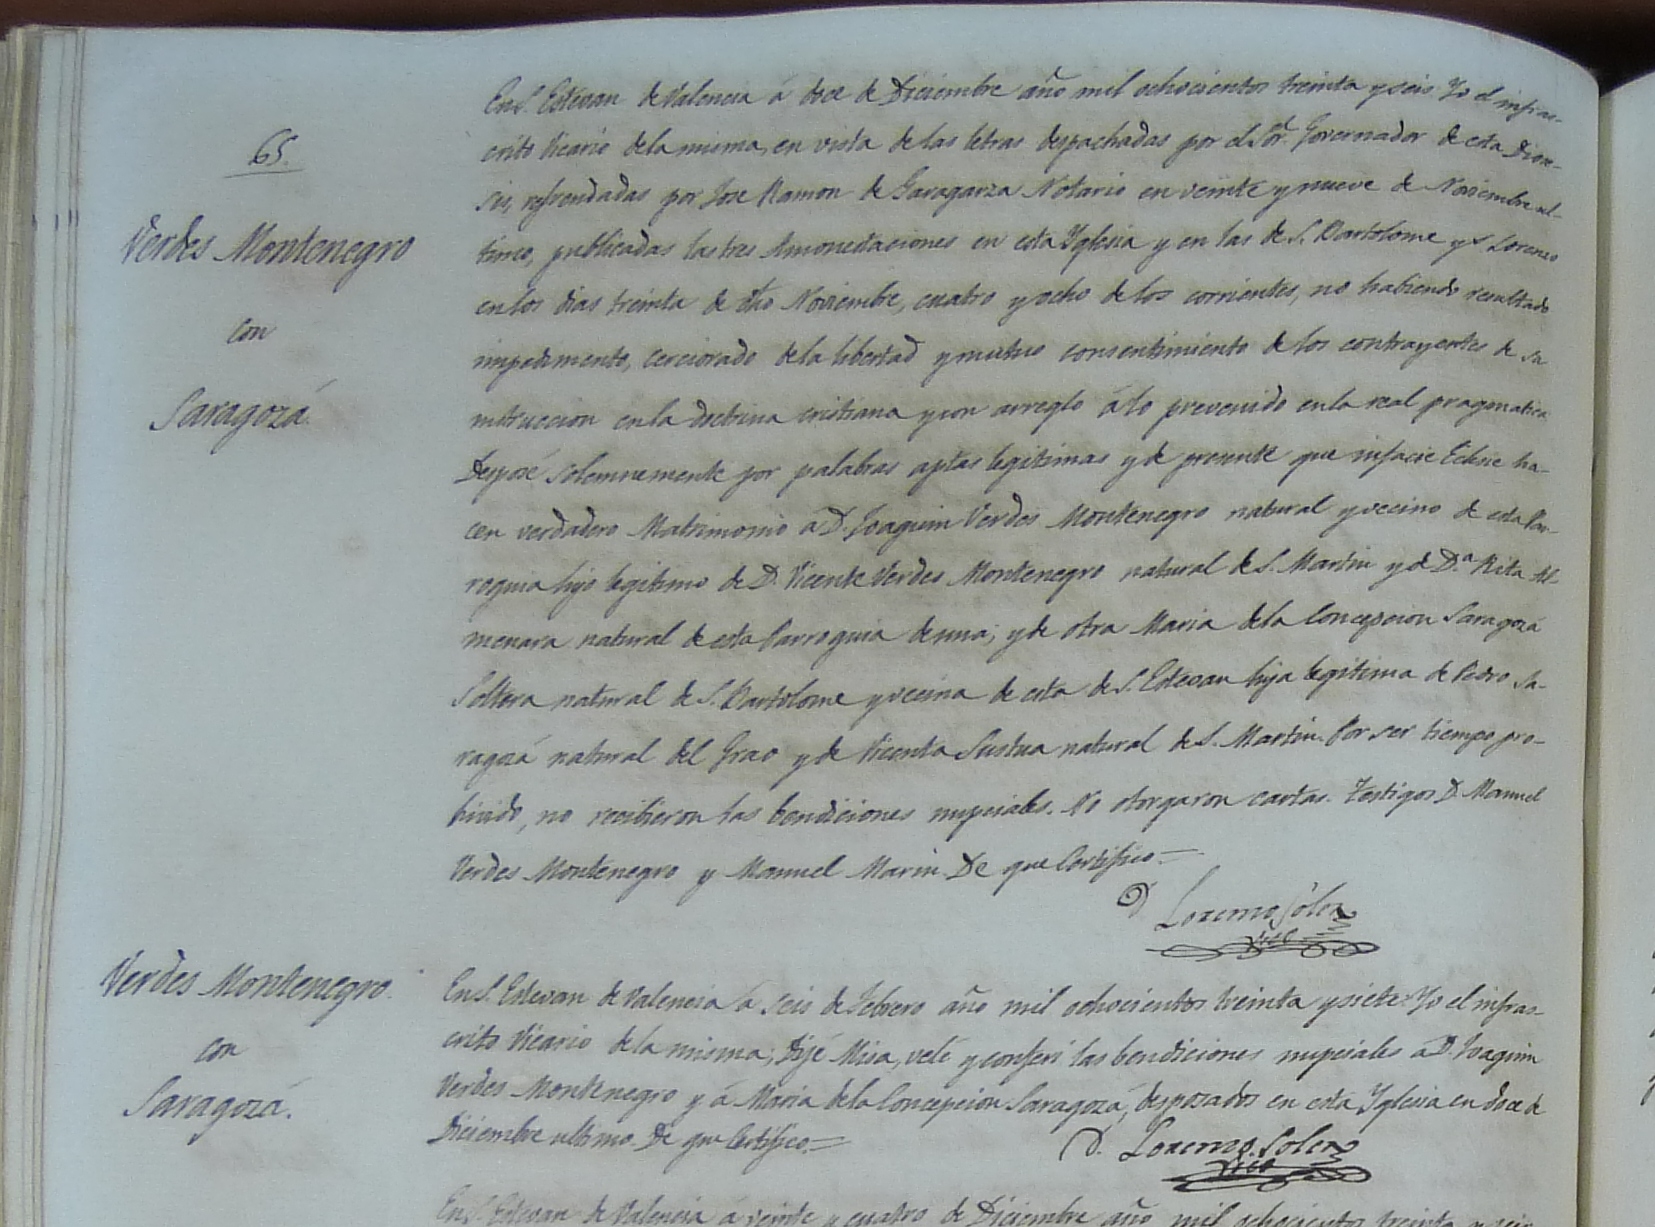 65.
Verdes Montenegro
con
Saragozá.
En S. Estevan de Valencia á doce de Diciembre año mil ochocientos treinta y seis. Yo el infras-
crito Vicario de la misma, en vista de las letras despachadas por el Sor. Governador de esta Dioce-
sis, refrendadas por Jose Ramon de Garagarza Notario en veinte y nueve de Noviembre ul-
timo, publicadas las tres Amonestaciones en esta Yglesia y en las de S. Bartolome y S. Lorenzo
en los dias treinta de dho Noviembre, cuatro y ocho de los corrientes, no habiendo resultado
impedimento, cerciorado de la libertad y mutuo consentimiento de los contrayentes de su
instruccion en la doctrina cristiana y con arreglo á lo prevenido en la real pragmatica
Desposé solemnemente por palabras aptas legitimas y de presente que infacie Eclesie ha-
cen verdadero Matrimonio á D. Joaquin Verdes Montenegro natural y vecino de esta Par-
roquia hijo legitimo de D. Vicente Verdes Montenegro natural de S. Martin y de D.ª Rita Al-
menara natural de esta Parroquia de una; y de otra Maria de la Concepcion Saragozá
Soltera natural de S. Bartolome y vecina de esta de S. Estevan hija legitima de Pedro Sa-
ragozá natural del Grao y de Vicenta natural de S. Martin. Por ser tiempo pro-
hivido, no recibieron las bendiciones nupciales. No otorgaron cartas. Testigos D. Manuel
Verdes Montenegro y Manuel Marin. De que Certifico=
D. Lorenzo Soler
Vico
Verdes Montenegro
con
Saragozá.
En S. Estevan de Valencia á seis de Febrero año mil ochocientos treinta y siete. Yo el infras-
crito Vicario de la misma; Dijé Misa, velé y conferí las bendiciones nupciales á D. Joaquin
Verdes Montenegro y á Maria de la Concepcion Saragozá, desposados en esta Yglesia en doce de
Diciembre ultimo. De que Certifico=
D. Lorenzo Soler
Vico
En S. Estevan de Valencia á veinte y cuatro de Diciembre año mil ochocientos treinta y seis